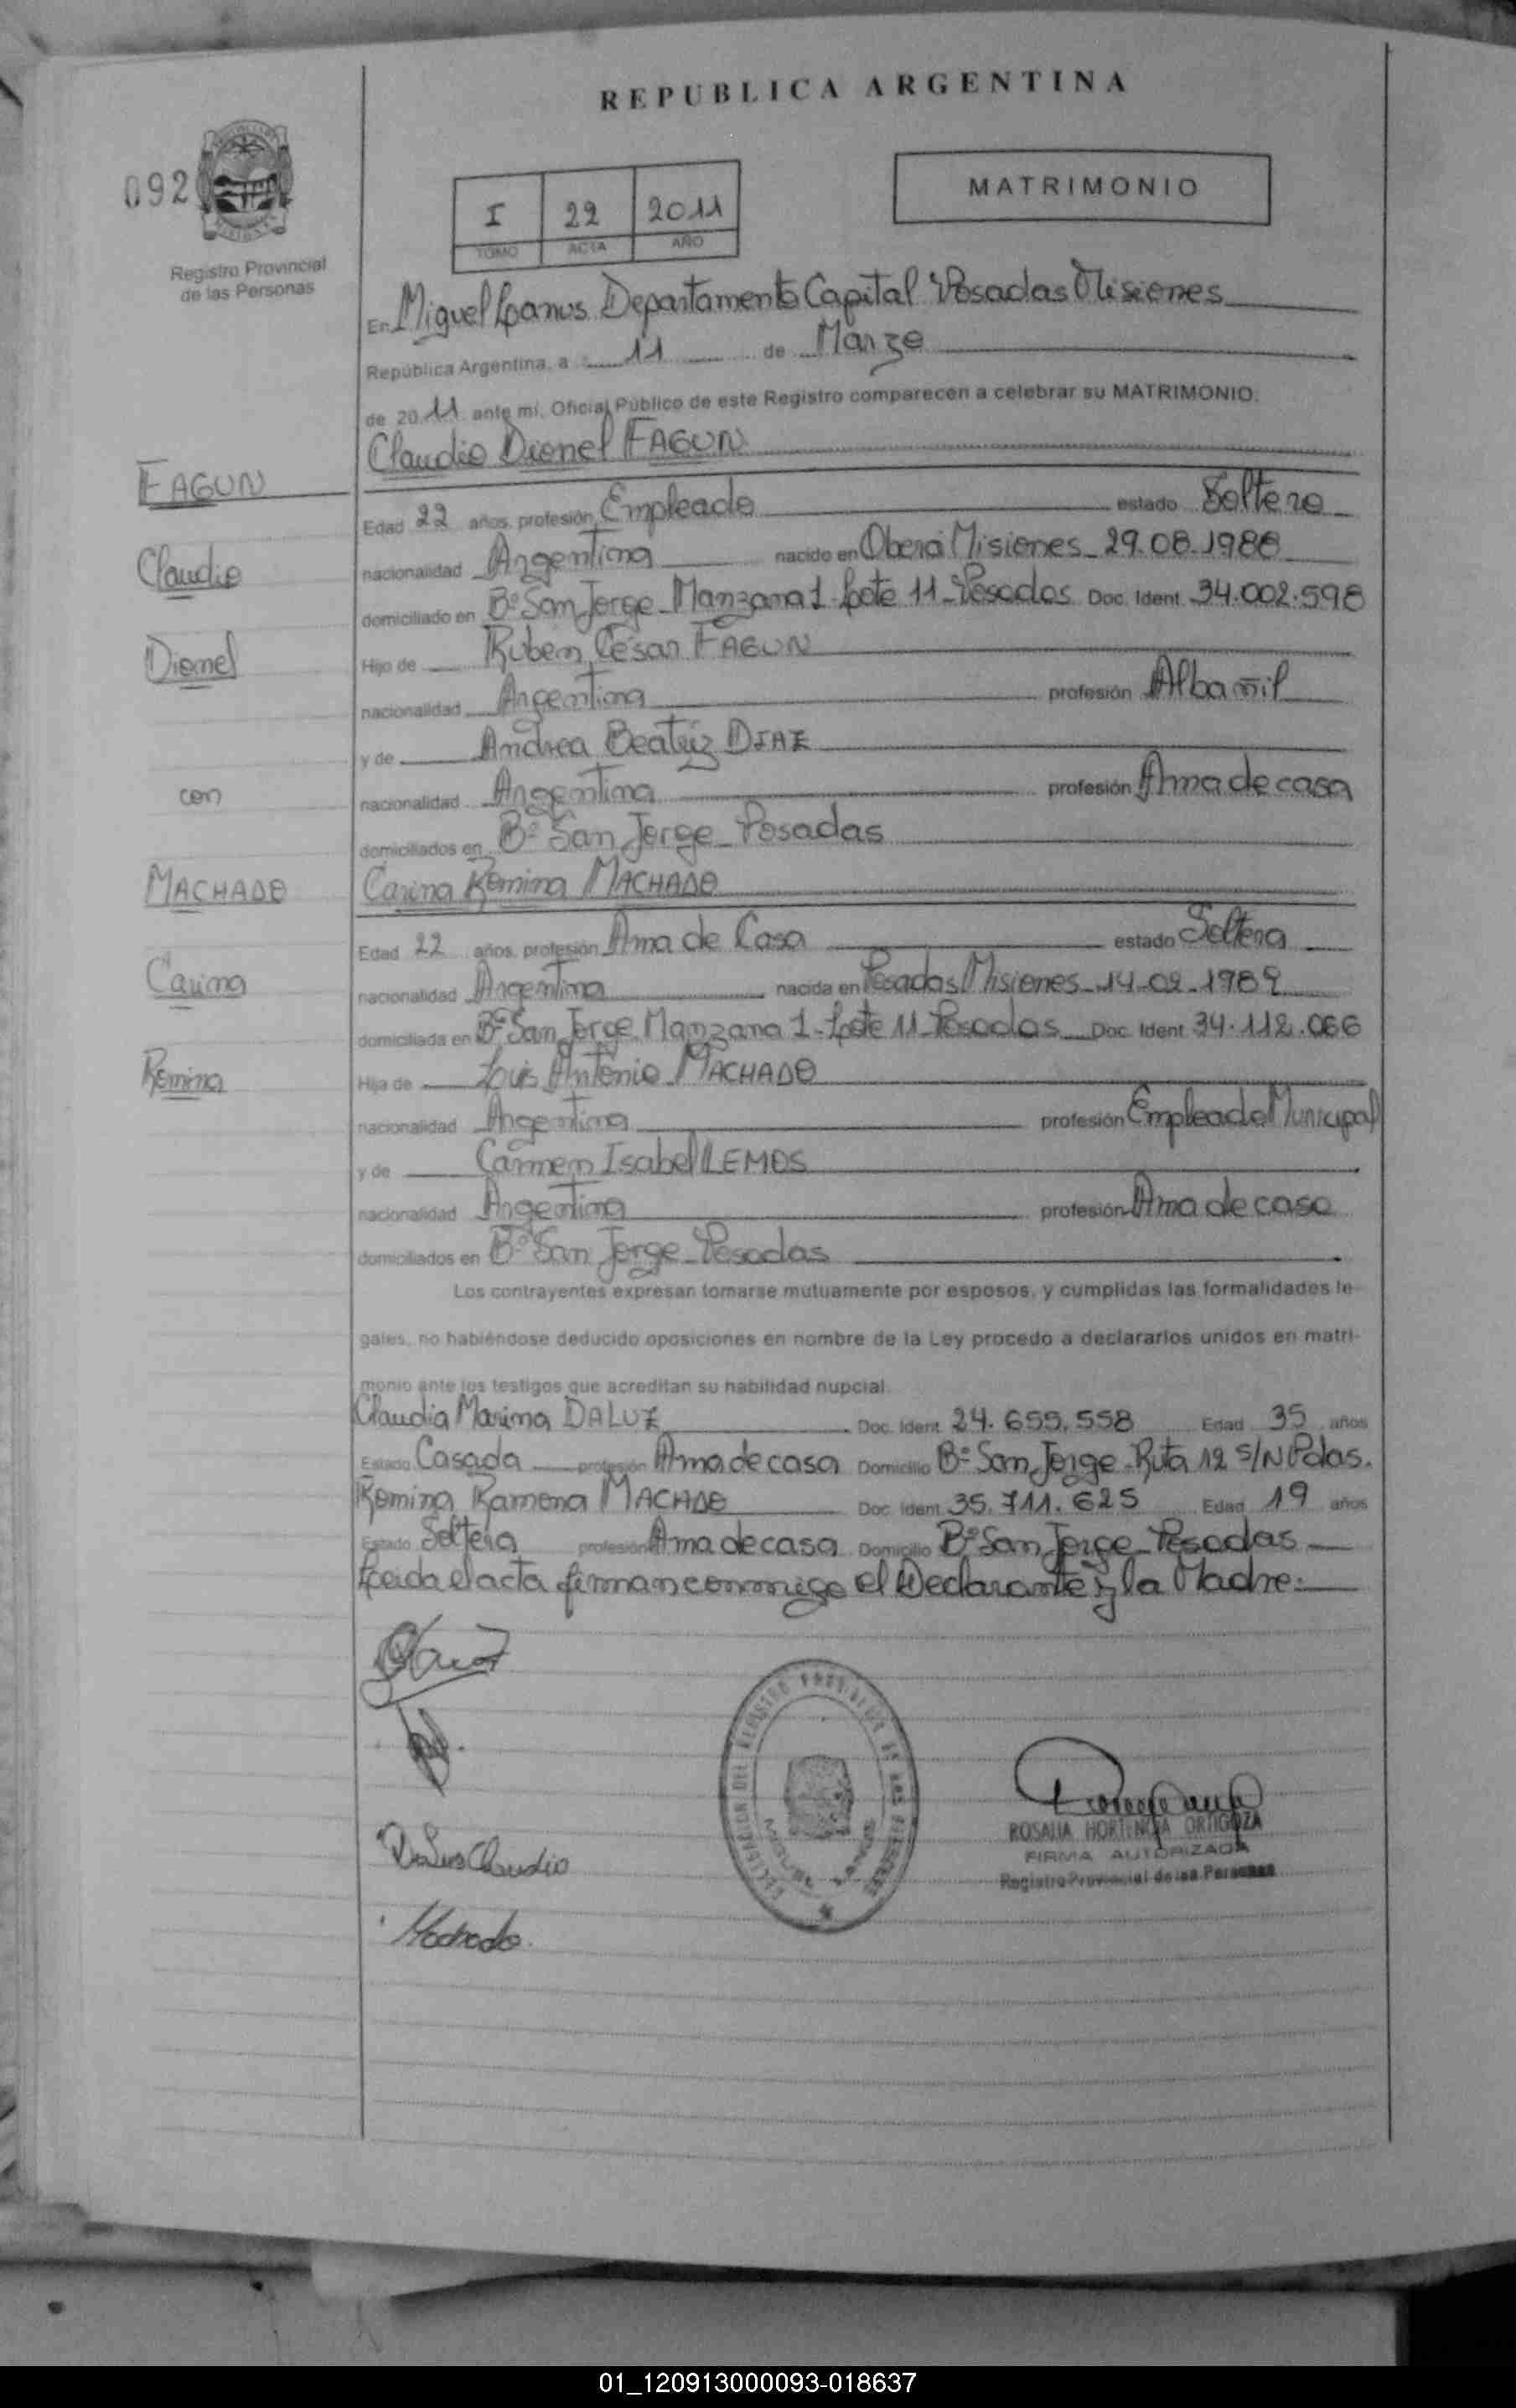 REPUBLICA ARGENTINA
092
Registro Provincial
de las Personas
I 22 2011
TOMO ACTA AÑO
MATRIMONIO
En Miguel Lanus Departamento Capital Posadas Misiones
República Argentina, a 11 de Marzo
de 2011 ante mí, Oficial Público de este Registro comparecen a celebrar su MATRIMONIO:
Claudio Dionel FAGUN
FAGUN
Edad 22 años, profesión Empleado estado Soltero
Claudio
nacionalidad Argentina nacido en Oberá Misiones - 29.08.1988
domiciliado en B° San Jorge - Manzana 1 - Lote 11 - Posadas Doc. Ident. 34.002.598
Dionel
Hijo de Ruben César FAGUN
nacionalidad Argentina profesión Albañil
y de Andrea Beatriz DIAZ
con
nacionalidad Argentina profesión Ama de casa
domiciliados en B° San Jorge - Posadas
MACHADO
Carina Romina MACHADO
Edad 22 años, profesión Ama de Casa estado Soltera
Carina
nacionalidad Argentina nacida en Posadas Misiones - 14-02-1989
domiciliada en B° San Jorge Manzana 1 - Lote 11 - Posadas Doc. Ident. 34.112.066
Romina
Hija de Luis Antonio MACHADO
nacionalidad Argentina profesión Empleado Municipal
y de Carmen Isabel LEMOS
nacionalidad Argentina profesión Ama de casa
domiciliados en B° San Jorge - Posadas
Los contrayentes expresan tomarse mutuamente por esposos, y cumplidas las formalidades le-
gales, no habiéndose deducido oposiciones en nombre de la Ley procedo a declararlos unidos en matri-
monio ante los testigos que acreditan su habilidad nupcial.
Claudia Marina DALUZ Doc. Ident. 24.655.558 Edad 35 años
Estado Casada profesión Ama de casa Domicilio B° San Jorge - Ruta 12 S/N Pdas.
Romina Ramona MACHADO Doc. Ident. 35.711.625 Edad 19 años
Estado Soltera profesión Ama de casa Domicilio B° San Jorge - Posadas
Leida el acta firman conmigo el Declarante y la Madre.
MIGUEL LANUS
ROSALIA HORTENCIA ORTIGOZA
FIRMA AUTORIZADA
Registro Provincial de las Personas
Machado
01_120913000093-018637